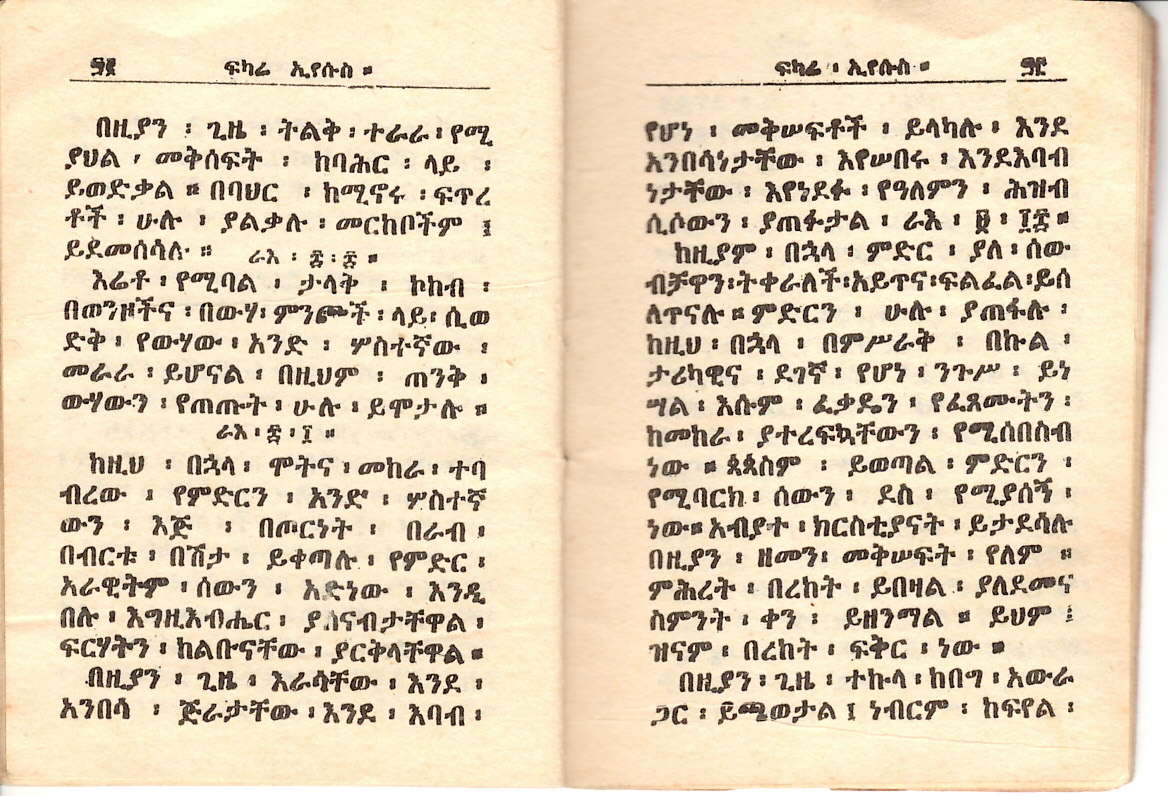 ፵፩ ፍካሬ ኢየሱስ ።
በዚያን ፡ ጊዜ ፡ ትልቅ ፡ ተራራ ፡ የሚ
ያህል ፡ መቅሰፍት ፡ ከባሕር ፡ ላይ ፡
ይወድቃል ። በባህር ፡ ከሚኖሩ ፡ ፍጥረ
ቶች ፡ ሁሉ ፡ ያልቃሉ ፡ መርከቦችም ፤
ይደመሰሳሉ ። ራእ ፡ ፰ ፡ ፰ ።
እሬቶ ፡ የሚባል ፡ ታላቅ ፡ ኮከብ ፡
በወንዞችና ፡ በውሃ ፡ ምንጮች ፡ ላይ ፡ ሲወ
ድቅ ፡ የውሃው ፡ አንድ ፡ ሦስተኛው ፡
መራራ ፡ ይሆናል ፡ በዚህም ፡ ጠንቅ ፡
ውሃውን ፡ የጠጡት ፡ ሁሉ ፡ ይሞታሉ ።
ራእ ፡ ፰ ፡ ፲ ።
ከዚህ ፡ በኋላ ፡ ሞትና ፡ መከራ ፡ ተባ
ብረው ፡ የምድርን ፡ አንድ ፡ ሦስተኛ
ውን ፡ እጅ ፡ በጦርነት ፡ በራብ ፡
በብርቱ ፡ በሽታ ፡ ይቀጣሉ ፡ የምድር ፡
አራዊትም ፡ ሰውን ፡ አድነው ፡ እንዲ
በሉ ፡ እግዚእብሔር ፡ ያሰናብታቸዋል ፡
ፍርሃትን ፡ ከልቡናቸው ፡ ያርቅላቸዋል ።
በዚያን ፡ ጊዜ ፡ እራሳቸው ፡ እንደ ፡
አንበሳ ፡ ጅራታቸው ፡ እንደ ፡ እባብ ፡
ፍካሬ ፡ ኢየሱስ ።
የሆነ ፡ መቅሠፍቶች ፡ ይላካሉ ፡ እንደ
አንበሳነታቸው ፡ እየሠበሩ ፡ እንደእባብ
ነታቸው ፡ እየነደፉ ፡ የዓለምን ፡ ሕዝብ
ሲሶውን ፡ ያጠፉታል ፡ ራእ ፡ ፱ ፡ ፲፰ ።
ከዚያም ፡ በኋላ ፡ ምድር ፡ ያለ ፡ ሰው
ብቻዋን ፡ ትቀራለች ፡ አይጥና ፡ ፍልፈል ፡ ይሰ
ለጥናሉ ። ምድርን ፡ ሁሉ ፡ ያጠፋሉ ፡
ከዚህ ፡ በኋላ ፡ በምሥራቅ ፡ በኩል ፡
ታሪካዊና ፡ ደገኛ ፡ የሆነ ፡ ንጉሥ ፡ ይነ
ሣል ፡ እሱም ፡ ፈቃዴን ፡ የፈጸሙትን ፡
ከመከራ ፡ ያተረፍኳቸውን ፡ የሚሰበስብ
ነው ። ጳጳስም ፡ ይወጣል ፡ ምድርን ፡
የሚባርክ ፡ ሰውን ፡ ደስ ፡ የሚያሰኝ ፡
ነው ። አብያተ ፡ ክርስቲያናት ፡ ይታደሳሉ
በዚያን ፡ ዘመን ፡ መቅሠፍት ፡ የለም ።
ምሕረት ፡ በረከት ፡ ይበዛል ፡ ያለደመና
ስምንት ፡ ቀን ፡ ይዘንማል ። ይህም ፡
ዝናም ፡ በረከት ፡ ፍቅር ፡ ነው ።
በዚያን ፡ ጊዜ ፡ ተኩላ ፡ ከበግ ፡ አውራ
ጋር ፡ ይጫወታል ፤ ነብርም ፡ ከፍየል ፡